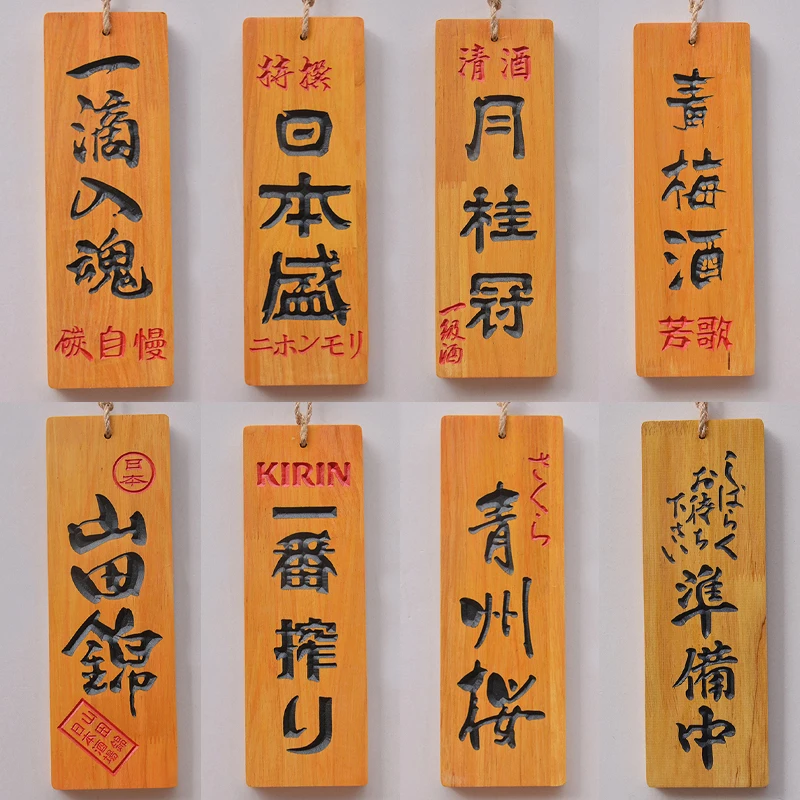 一滴入魂
碳自慢
特撰
日本盛
ニホンモリ
清酒
月桂冠
一級酒
青梅酒
若歌
日本
山田錦
山田錦
日本酒場
KIRIN
一番搾り
さくら
青州桜
しばらく
お待ち
下さい
準備中